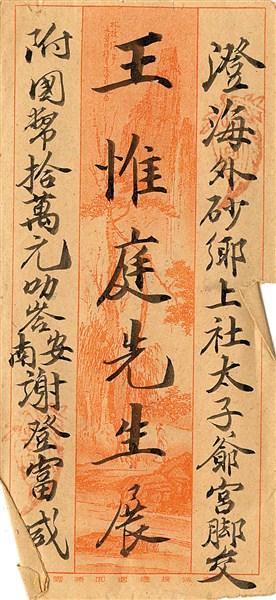 澄海外砂鄉上社太子爺宮脚交
王惟庭先生展
附國幣拾萬元 叻吝安南謝登富 咸